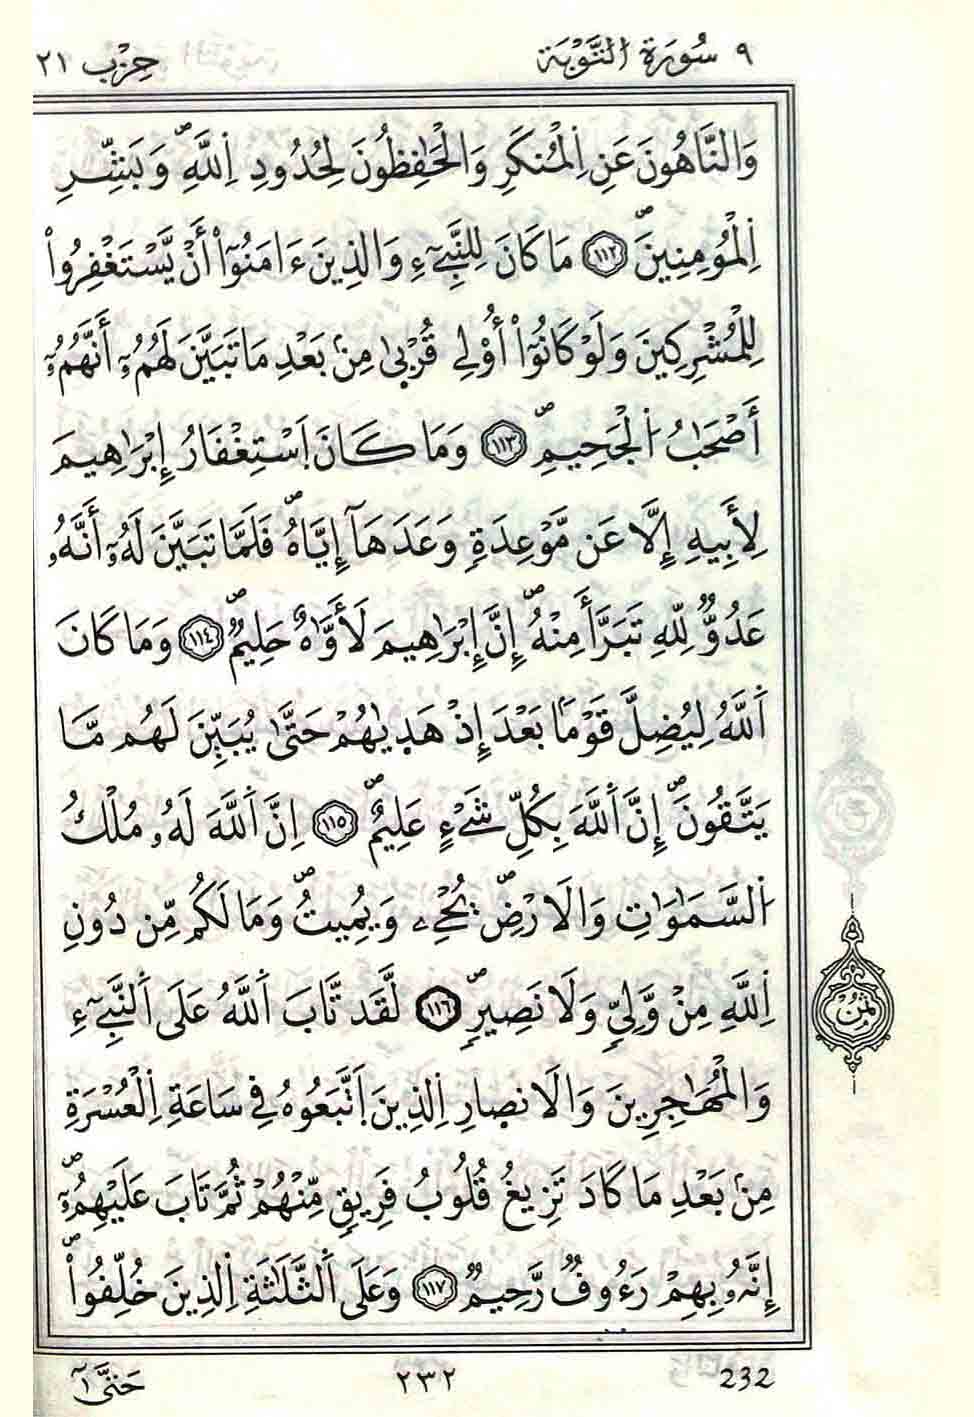 ٩ سُورَةُ التَّوْبَة
حِزْب ٢١
وَالنَّاهُونَ عَنِ اِ۬لْمُنكَرِ وَالْحَٰفِظُونَ لِحُدُودِ اِ۬للَّهِۖ وَبَشِّرِ
اِ۬لْمُومِنِينَۖ ١١٢ مَا كَانَ لِلنَّبِےٓءِ وَالذِينَ ءَامَنُوٓاْ أَنْ يَّسْتَغْفِرُواْ
لِلْمُشْرِكِينَ وَلَوْ كَانُوٓاْ أُوْلِے قُرْب۪يٰ مِنۢ بَعْدِ مَا تَبَيَّنَ لَهُمُۥٓ أَنَّهُمُۥٓ
أَصْحَٰبُ اُ۬لْجَحِيمِۖ ١١٣ وَمَا كَانَ اَ۪سْتِغْفَارُ إِبْرَاهِيمَ
لِأَبِيهِ إِلَّا عَن مَّوْعِدَةٖ وَعَدَهَآ إِيَّاهُۖ فَلَمَّا تَبَيَّنَ لَهُۥٓ أَنَّهُۥ
عَدُوّٞ لِّلهِ تَبَرَّأَ مِنْهُۖ إِنَّ إِبْرَاهِيمَ لَأَوَّٰهٌ حَلِيمٞۖ ١١٤ وَمَا كَانَ
اَ۬للَّهُ لِيُضِلَّ قَوْماَۢ بَعْدَ إِذْ هَد۪يٰهُمْ حَتَّىٰ يُبَيِّنَ لَهُم مَّا
يَتَّقُونَۖ إِنَّ اَ۬للَّهَ بِكُلِّ شَےْءٍ عَلِيمٌۖ ١١٥ اِنَّ اَ۬للَّهَ لَهُۥ مُلْكُ
اُ۬لسَّمَٰوَٰتِ وَالَارْضِۖ يُحْيِۦ وَيُمِيتُۖ وَمَا لَكُم مِّن دُونِ
اِ۬للَّهِ مِنْ وَّلِيّٖ وَلَا نَصِيرٖۖ ١١٦ لَّقَد تَّابَ اَ۬للَّهُ عَلَى اَ۬لنَّبِےٓءِ
وَالْمُهَٰجِرِينَ وَالَانص۪ارِ اِ۬لذِينَ اَ۪تَّبَعُوهُ فِے سَاعَةِ اِ۬لْعُسْرَةِ
مِنۢ بَعْدِ مَا كَادَ تَزِيغُ قُلُوبُ فَرِيقٖ مِّنْهُمْ ثُمَّ تَابَ عَلَيْهِمُۥٓۖ
إِنَّهُۥ بِهِمْ رَءُوفٞ رَّحِيمٞۖ ١١٧ وَعَلَى اَ۬لثَّلَٰثَةِ اِ۬لذِينَ خُلِّفُواْۖ
ثُمُن
حَتَّىٰٓ
٢٣٢
232